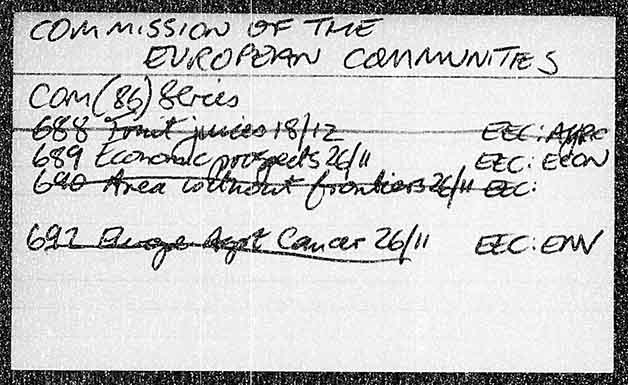 COMMISSION OF THE
EUROPEAN COMMUNITIES
COM(86) Series
688 Fruit juices 18/12 EEC: AGRIC
689 Economic prospects 26/11 EEC: ECON
690 Area without frontiers 26/11 EEC:
692 Europe Agst Cancer 26/11 EEC: ENV